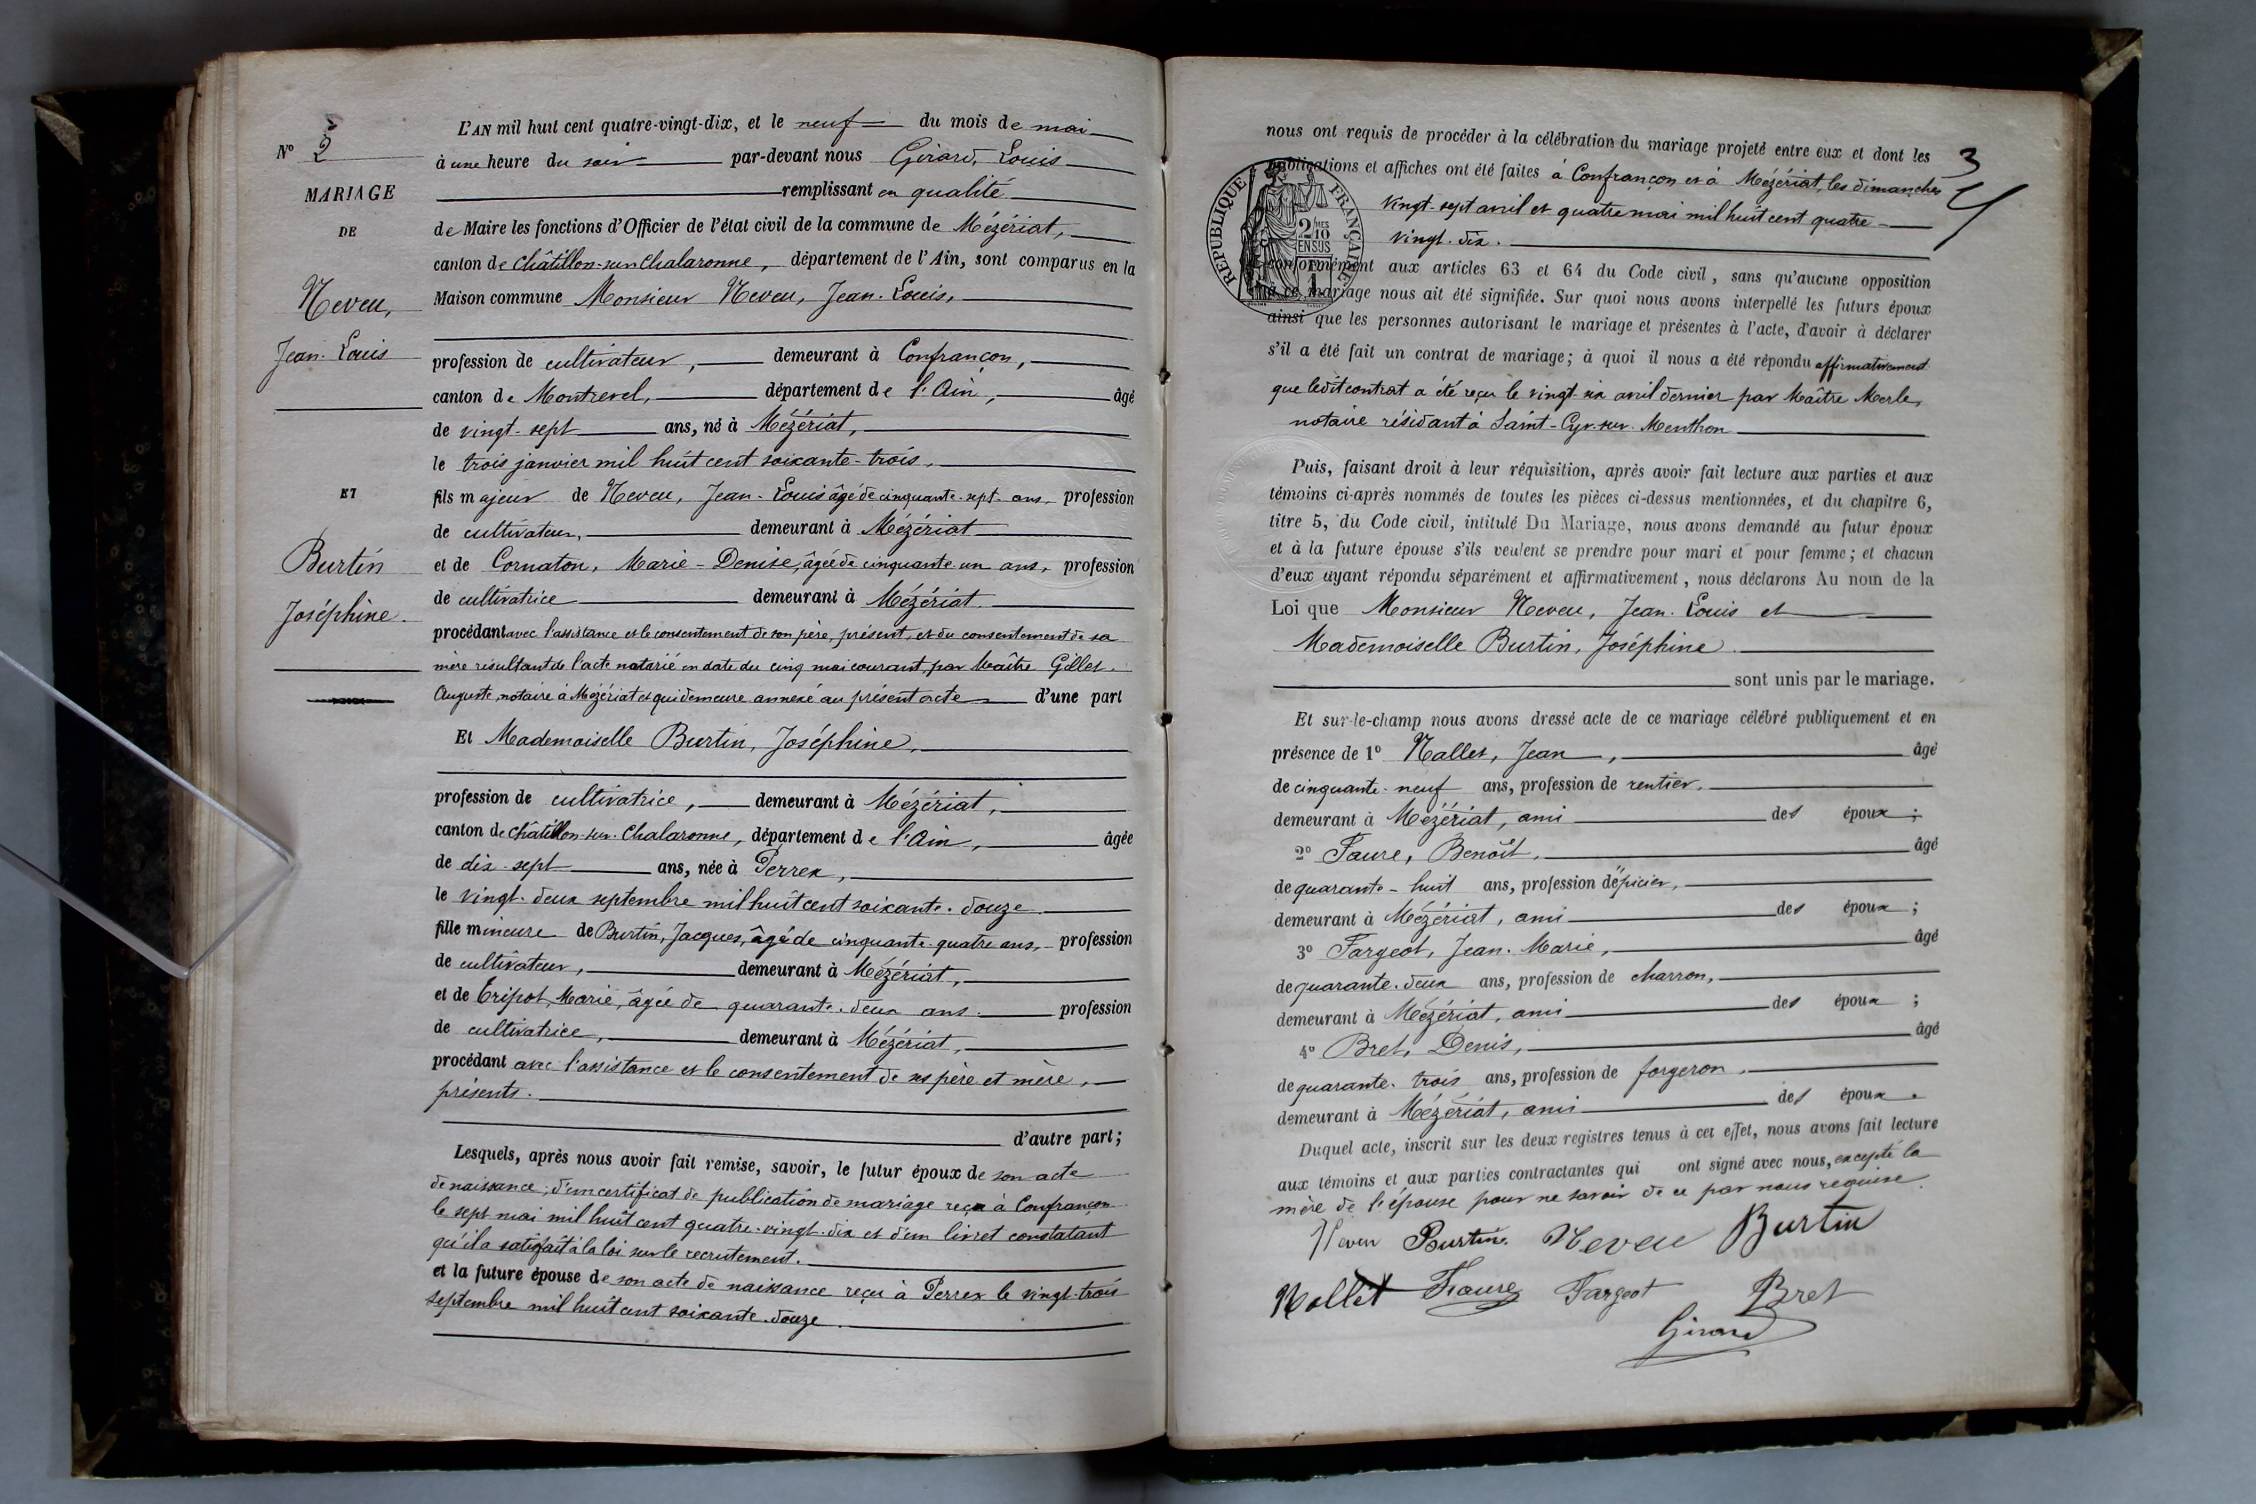 N° 2
MARIAGE
DE
Neveu,
Jean-Louis
ET
Burtin
Joséphine.
L'AN mil huit cent quatre-vingt-dix, et le neuf du mois de mai
à une heure du soir par-devant nous Girard, Louis
remplissant en qualité
de Maire les fonctions d'Officier de l'état civil de la commune de Mézériat,
canton de Châtillon-sur-Chalaronne, département de l'Ain, sont comparus en la
Maison commune Monsieur Neveu, Jean-Louis,
profession de cultivateur, demeurant à Confrançon,
canton de Montrevel, département de l'Ain, âgé
de vingt-sept ans, né à Mézériat,
le trois janvier mil huit cent soixante-trois,
fils majeur de Neveu, Jean-Louis âgé de cinquante-sept ans, profession
de cultivateur, demeurant à Mézériat
et de Cornaton, Marie-Denise, âgée de cinquante-un ans, profession
de cultivatrice demeurant à Mézériat.
procédant avec l'assistance et le consentement de son père, présent, et du consentement de sa
mère résultant de l'acte notarié en date du cinq mai courant, par Maître Gillet.
Auguste, notaire à Mézériat et qui demeure annexé au présent acte d'une part
Et Mademoiselle Burtin, Joséphine,
profession de cultivatrice, demeurant à Mézériat,
canton de Châtillon-sur-Chalaronne, département de l'Ain, âgée
de dix-sept ans, née à Perrex,
le vingt-deux septembre mil huit cent soixante-douze.
fille mineure de Burtin, Jacques, âgé de cinquante-quatre ans, profession
de cultivateur, demeurant à Mézériat,
et de Eripot, Marie, âgée de quarante-deux ans. profession
de cultivatrice, demeurant à Mézériat,
procédant avec l'assistance et le consentement de ses père et mère,
présents.
d'autre part;
Lesquels, après nous avoir fait remise, savoir, le futur époux de son acte
de naissance; d'un certificat de publication de mariage reçu à Confrançon
le sept mai mil huit cent quatre-vingt-dix et d'un livret constatant
qu'il a satisfait à la loi sur le recrutement.
et la future épouse de son acte de naissance reçu à Perrex le vingt-trois
septembre mil huit cent soixante-douze.
3
nous ont requis de procéder à la célébration du mariage projeté entre eux et dont les
publications et affiches ont été faites à Confrançon et à Mézériat, les dimanches
vingt-sept avril et quatre mai mil huit cent quatre-
vingt-dix.
RÉPUBLIQUE FRANÇAISE
2/10MES
EN SUS
conformément aux articles 63 et 64 du Code civil, sans qu'aucune opposition
à ce mariage nous ait été signifiée. Sur quoi nous avons interpellé les futurs époux
ainsi que les personnes autorisant le mariage et présentes à l'acte, d'avoir à déclarer
s'il a été fait un contrat de mariage; à quoi il nous a été répondu affirmativement
que ledit contrat a été reçu le vingt-six avril dernier par Maître Merle,
notaire résidant à Saint-Cyr-sur-Menthon
Puis, faisant droit à leur réquisition, après avoir fait lecture aux parties et aux
témoins ci-après nommés de toutes les pièces ci-dessus mentionnées, et du chapitre 6,
titre 5, du Code civil, intitulé Du Mariage, nous avons demandé au futur époux
et à la future épouse s'ils veulent se prendre pour mari et pour femme; et chacun
d'eux ayant répondu séparément et affirmativement, nous déclarons Au nom de la
Loi que Monsieur Neveu, Jean-Louis et
Mademoiselle Burtin, Joséphine.
sont unis par le mariage.
Et sur-le-champ nous avons dressé acte de ce mariage célébré publiquement et en
présence de 1° Nallet, Jean, âgé
de cinquante-neuf ans, profession de rentier,
demeurant à Mézériat, ami des époux;
2° Faure, Benoît, âgé
de quarante-huit ans, profession d'épicier,
demeurant à Mézériat, ami des époux;
3° Fargeot, Jean-Marie, âgé
de quarante-deux ans, profession de charron,
demeurant à Mézériat, ami des époux;
4° Bret, Denis, âgé
de quarante-trois ans, profession de forgeron,
demeurant à Mézériat, ami des époux.
Duquel acte, inscrit sur les deux registres tenus à cet effet, nous avons fait lecture
aux témoins et aux parties contractantes qui ont signé avec nous, excepté la
mère de l'épouse pour ne savoir de ce par nous requise.
Neveu Burtin. Neveu Burtin
Nallet Faure Fargeot Bret
Girard